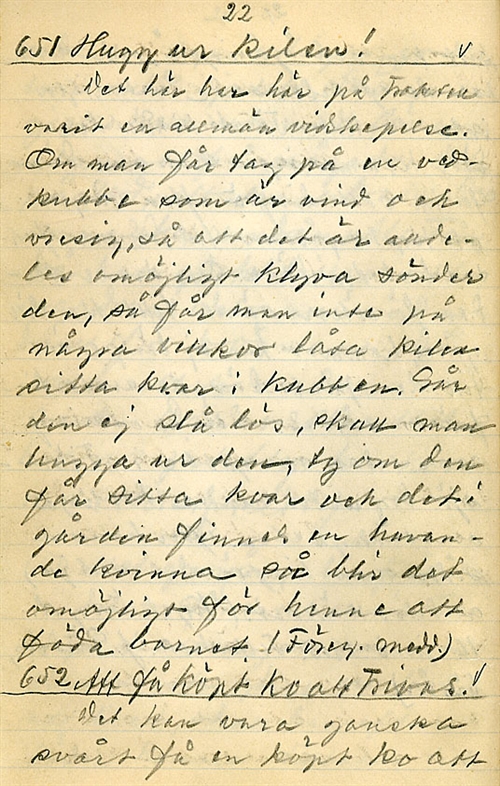 22
651 Hugg ur kilen! v
Det här har här på trakten
varit en allmän vidskepelse.
Om man får tag på en ved-
kubbe som är vind och
vresig, så att det är alde-
les omöjligt klyva sönder
den, så får man inte på
några villkor låta kilen
sitta kvar i kubben. Går
den ej slå lös, skall man
hugga ur den, ty om den
får sitta kvar och det i
gården finnes en havan-
de kvinna så blir det
omöjligt för henne att
föda barnet (Föreg. medd.)
652. Att få köpt ko att trivas. v
Det kan vara ganska
svårt få en köpt ko att